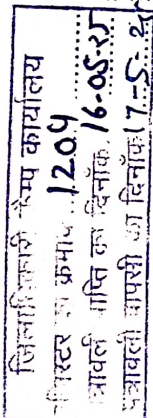 जिलाधिकारी कैम्प कार्यालय
रजिस्टर का क्रमांक 1204
पत्रावली प्राप्ति का दिनाँक 16-05-25
पत्रावली वापसी का दिनाँक 17-5-2